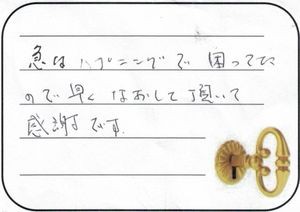 急なハプニングで困ってた
ので早くなおして頂いて
感謝です。